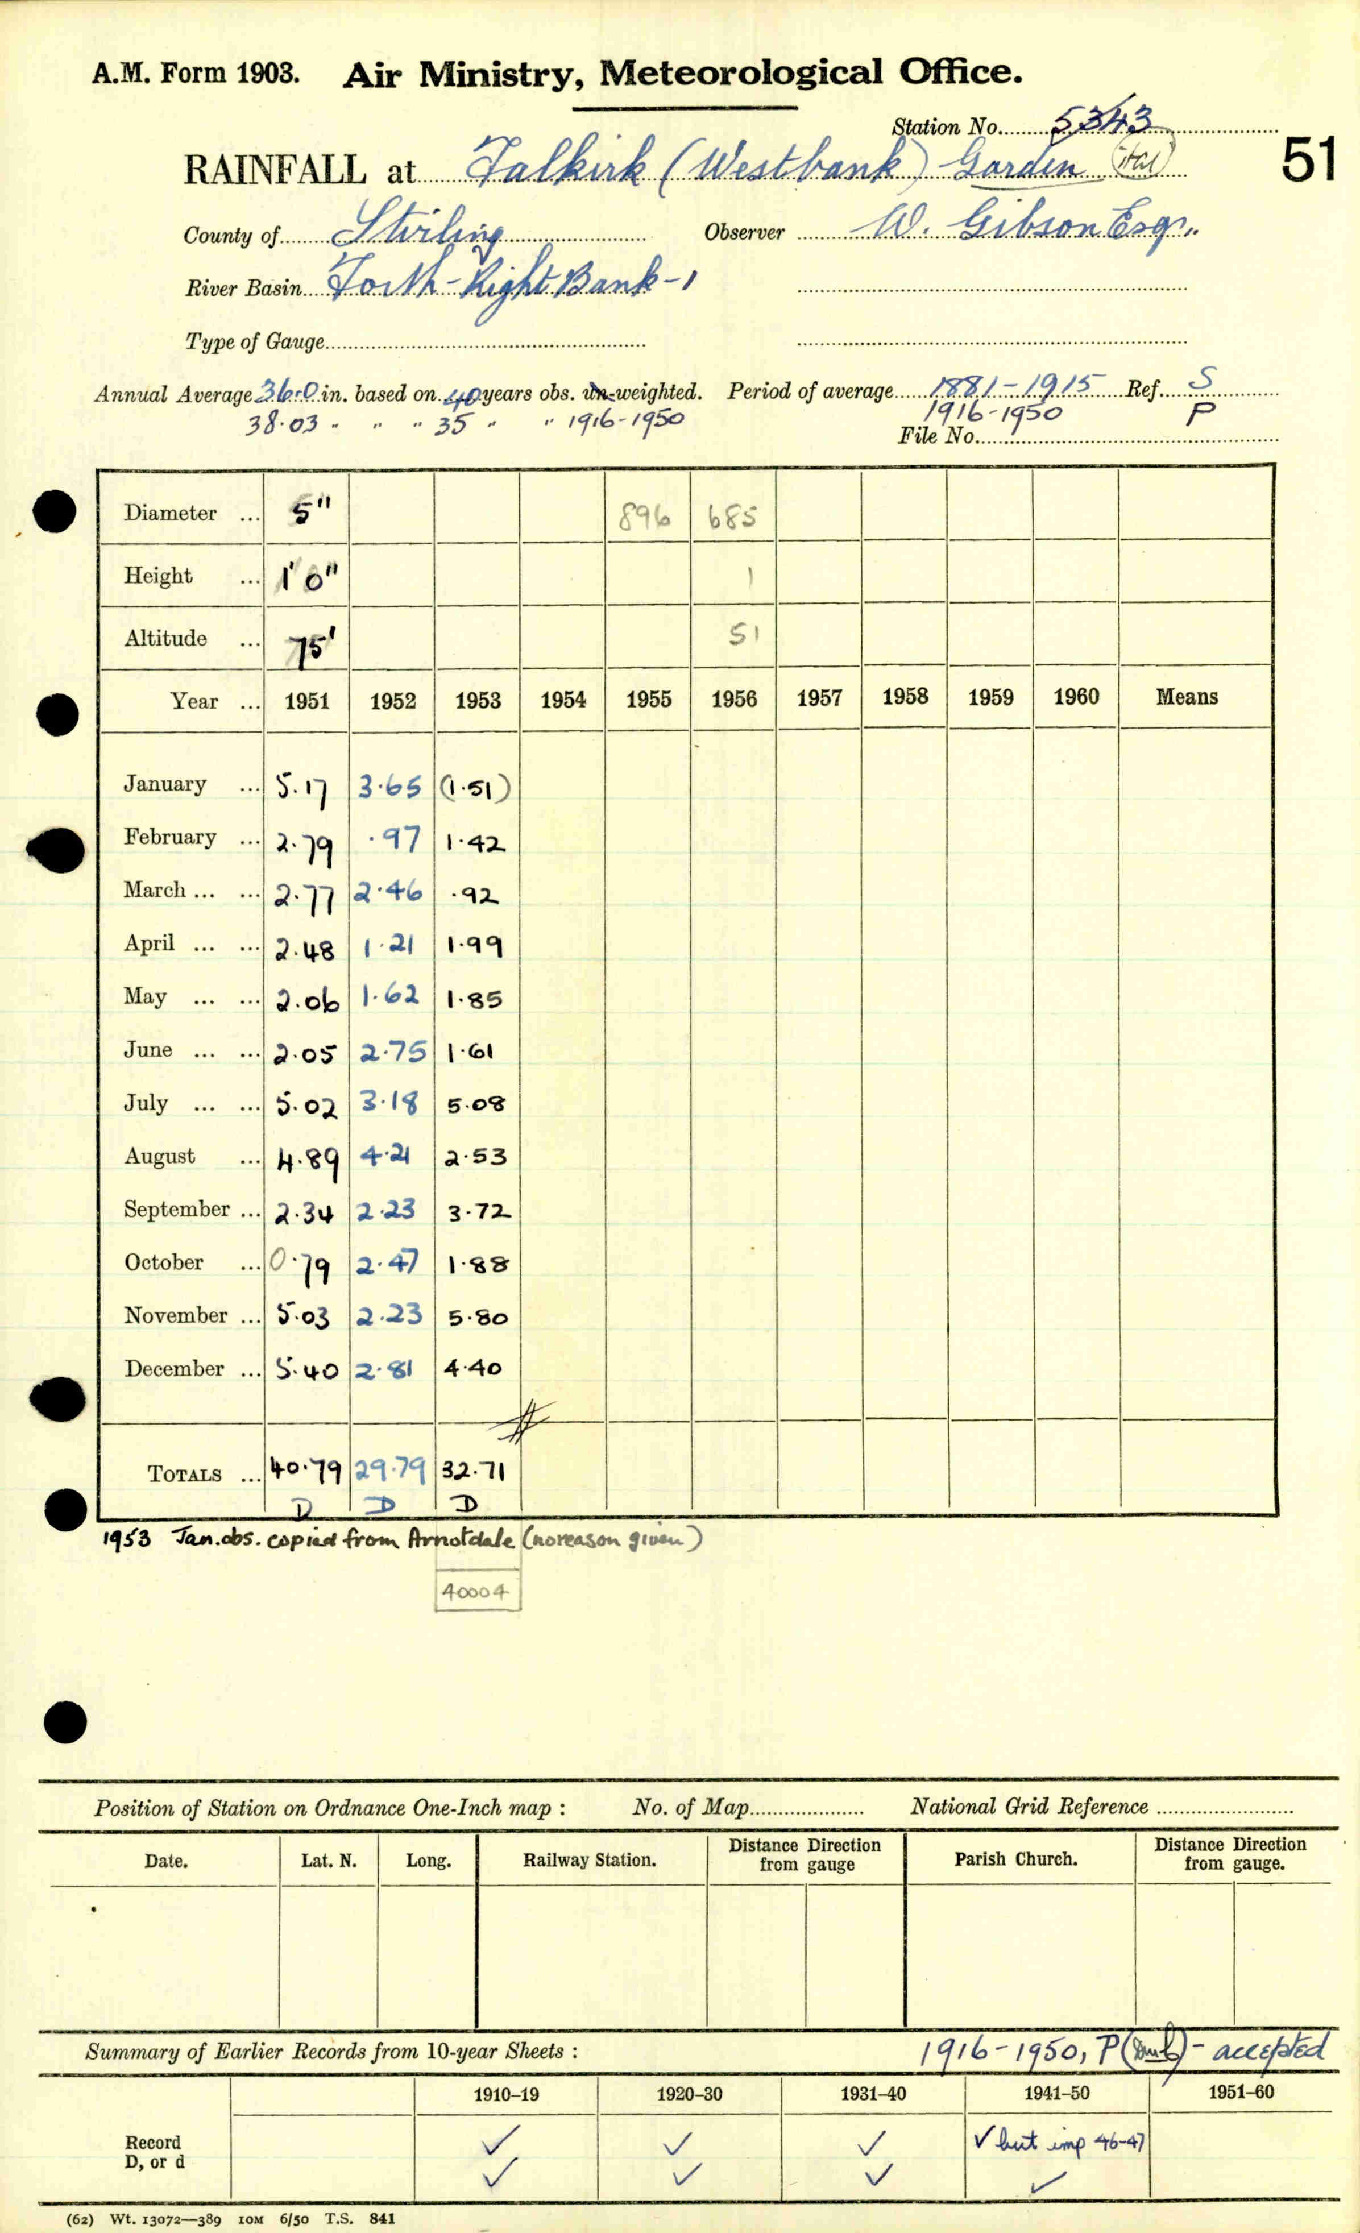 A.M. Form 1903. Air Ministry, Meteorological Office.
Station No. 5343
RAINFALL at Falkirk (Westbank) Garden
51
County of Stirling Observer W. Gibson Esq.,
River Basin Forth-Right Bank-1
Type of Gauge
Annual Average 36.0 in. based on 40 years obs. un-weighted. Period of average 1881-1915 Ref. S
38.03 " " " 35 " " 1916-1950 1916-1950 P
File No.
Diameter ... 5" 896 685
Height ... 1' 0" 1
Altitude ... 75' 51
Year ... 1951 1952 1953 1954 1955 1956 1957 1958 1959 1960 Means
January ... 5.17 3.65 (1.51)
February ... 2.79 .97 1.42
March ... ... 2.77 2.46 .92
April ... ... 2.48 1.21 1.99
May ... ... 2.06 1.62 1.85
June ... ... 2.05 2.75 1.61
July ... ... 5.02 3.18 5.08
August ... 4.89 4.21 2.53
September ... 2.34 2.23 3.72
October ... 0.79 2.47 1.88
November ... 5.03 2.23 5.80
December ... 5.40 2.81 4.40
TOTALS ... 40.79 29.79 32.71
D D D
1953 Jan. obs. copied from Arnotdale (no reason given)
40004
Position of Station on Ordnance One-Inch map : No. of Map National Grid Reference
Date. Lat. N. Long. Railway Station. Distance Direction from gauge Parish Church. Distance Direction from gauge.
Summary of Earlier Records from 10-year Sheets : 1916-1950, P - accepted
1910-19 1920-30 1931-40 1941-50 1951-60
Record ✓ ✓ ✓ ✓ but imp 46-47
D, or d ✓ ✓ ✓ ✓
(62) Wt. 13072—389 10M 6/50 T.S. 841